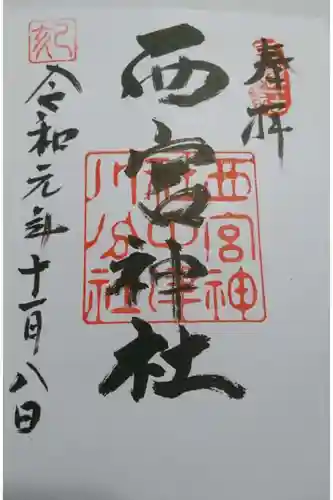 奉拝
西宮神社
西宮神
川公社
令和元年十一月八日